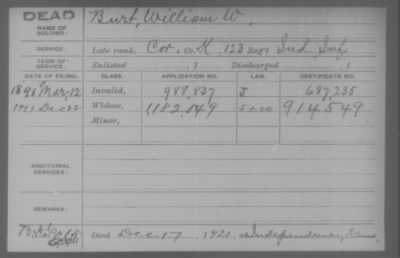 DEAD
NAME OF SOLDIER:
Burt, William W.
SERVICE:
Late rank, Cor. Co. K, 123 Reg't Ind. Inf.
TERM OF SERVICE:
Enlisted , 1 Discharged , 1
DATE OF FILING. CLASS. APPLICATION NO. LAW. CERTIFICATE NO.
1890 Mar, 12 Invalid, 988,837 J 687,235
1921 Dec 22 Widow, 1,182,849 914549
Minor,
ADDITIONAL SERVICES:
REMARKS:
Died Dec 17, 1921, at Independence, Kans.